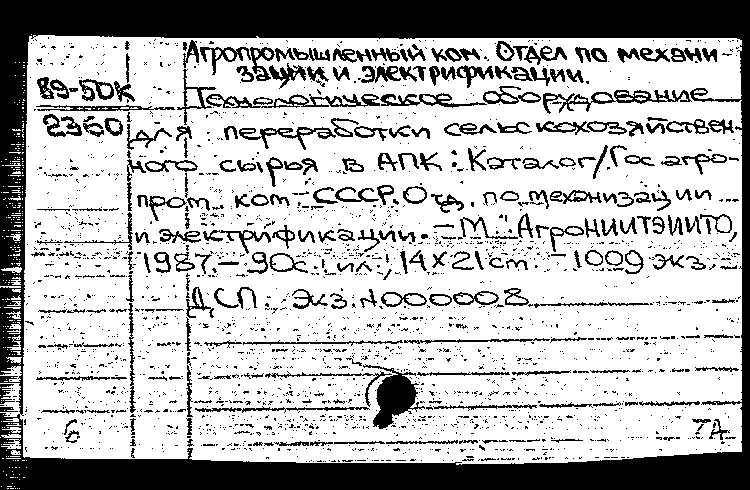 Агропромышленный ком. Отдел по механи-
зации и электрификации.
89-50К Технологическое оборудование
2360 для переработки сельскохозяйствен-
ного сырья в АПК: Каталог/Гос агро-
пром. ком СССР. Отд. по механизации
и электрификации. - М.: АгроНИИТЭИИТО,
1987. - 90с.: ил.; 14×21 cm. - 1009 экз.
ДСП. Экз. N.000008
6 ТА